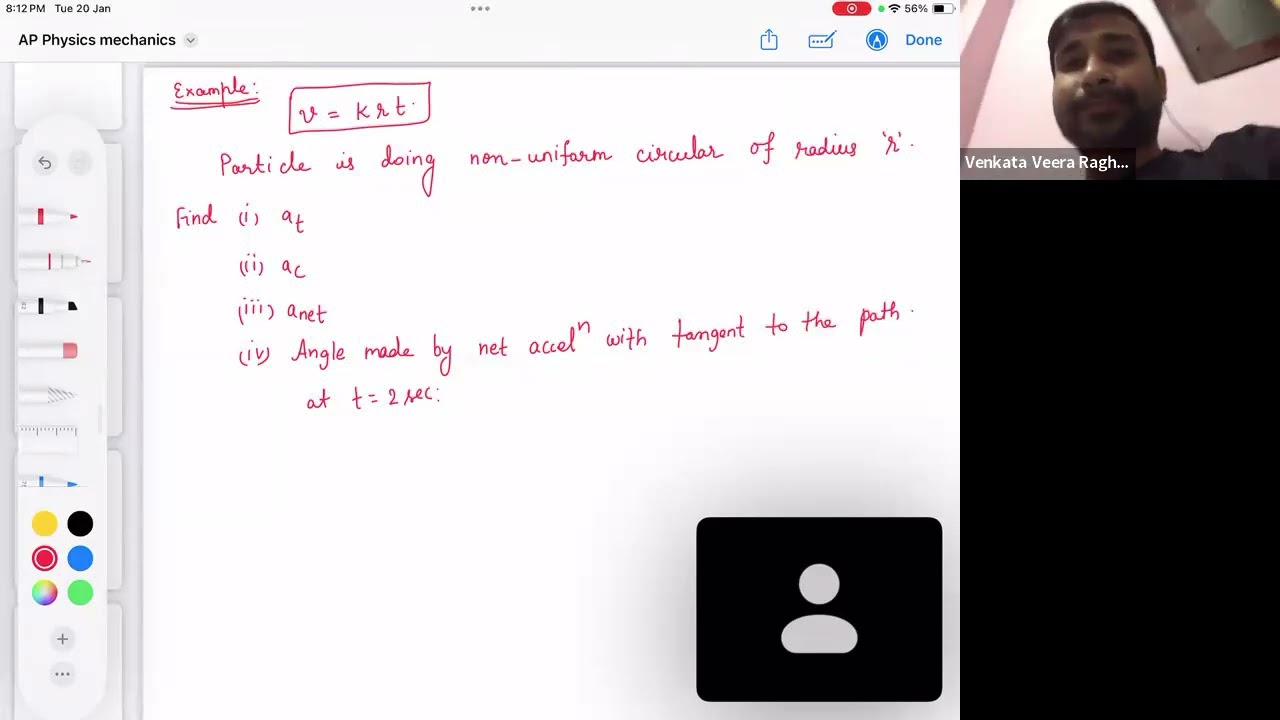 8:12 PM Tue 20 Jan
56%
AP Physics mechanics
Done
Example:
v = k r t.
Particle is doing non-uniform circular of radius 'r'.
Find (i) at
(ii) ac
(iii) anet
(iv) Angle made by net acceln with tangent to the path.
at t = 2 sec:
Venkata Veera Ragh...